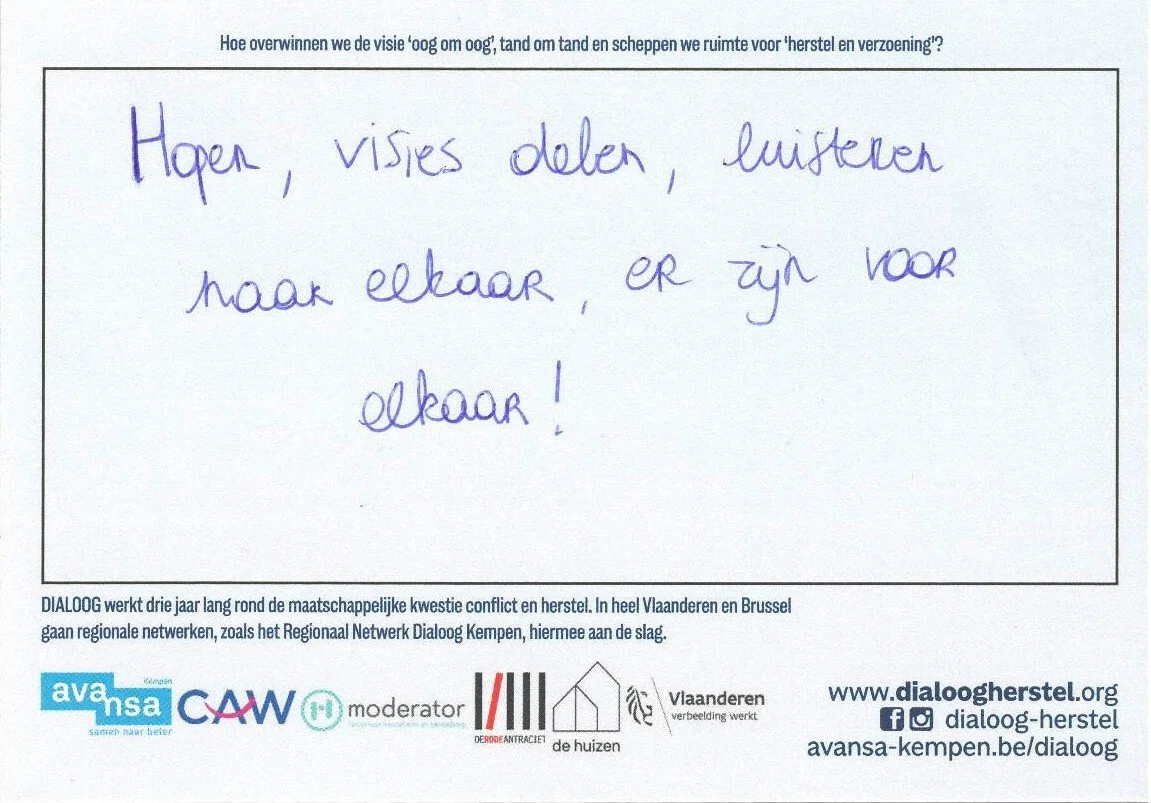 Hoe overwinnen we de visie 'oog om oog', tand om tand en scheppen we ruimte voor 'herstel en verzoening'?
Hopen, visies delen, luisteren
naar elkaar, er zijn voor
elkaar!
DIALOOG werkt drie jaar lang rond de maatschappelijke kwestie conflict en herstel. In heel Vlaanderen en Brussel
gaan regionale netwerken, zoals het Regionaal Netwerk Dialoog Kempen, hiermee aan de slag.
Kempen
avansa
samen naar beter
CAW
moderator
DERODEANTRACIET
de huizen
Vlaanderen
verbeelding werkt
www.dialoogherstel.org
dialoog-herstel
avansa-kempen.be/dialoog